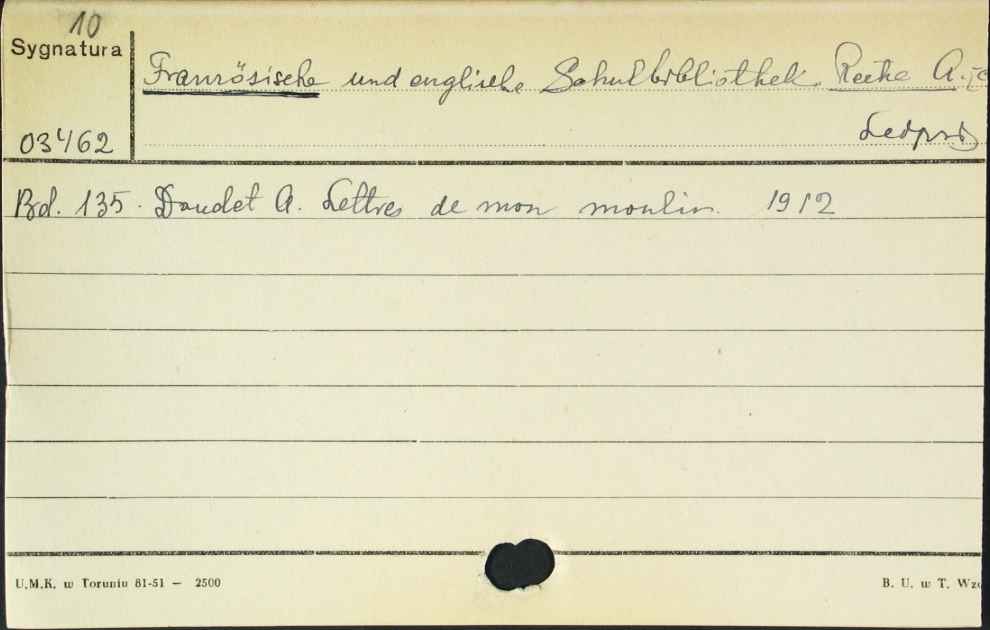 10
Sygnatura
Französische und englische Schulbibliothek. Reihe A.
03462
Bd. 135. Daudet A. Lettres de mon moulin. 1912
U.M.K. w Toruniu 81-51 — 2500
B. U. w T.